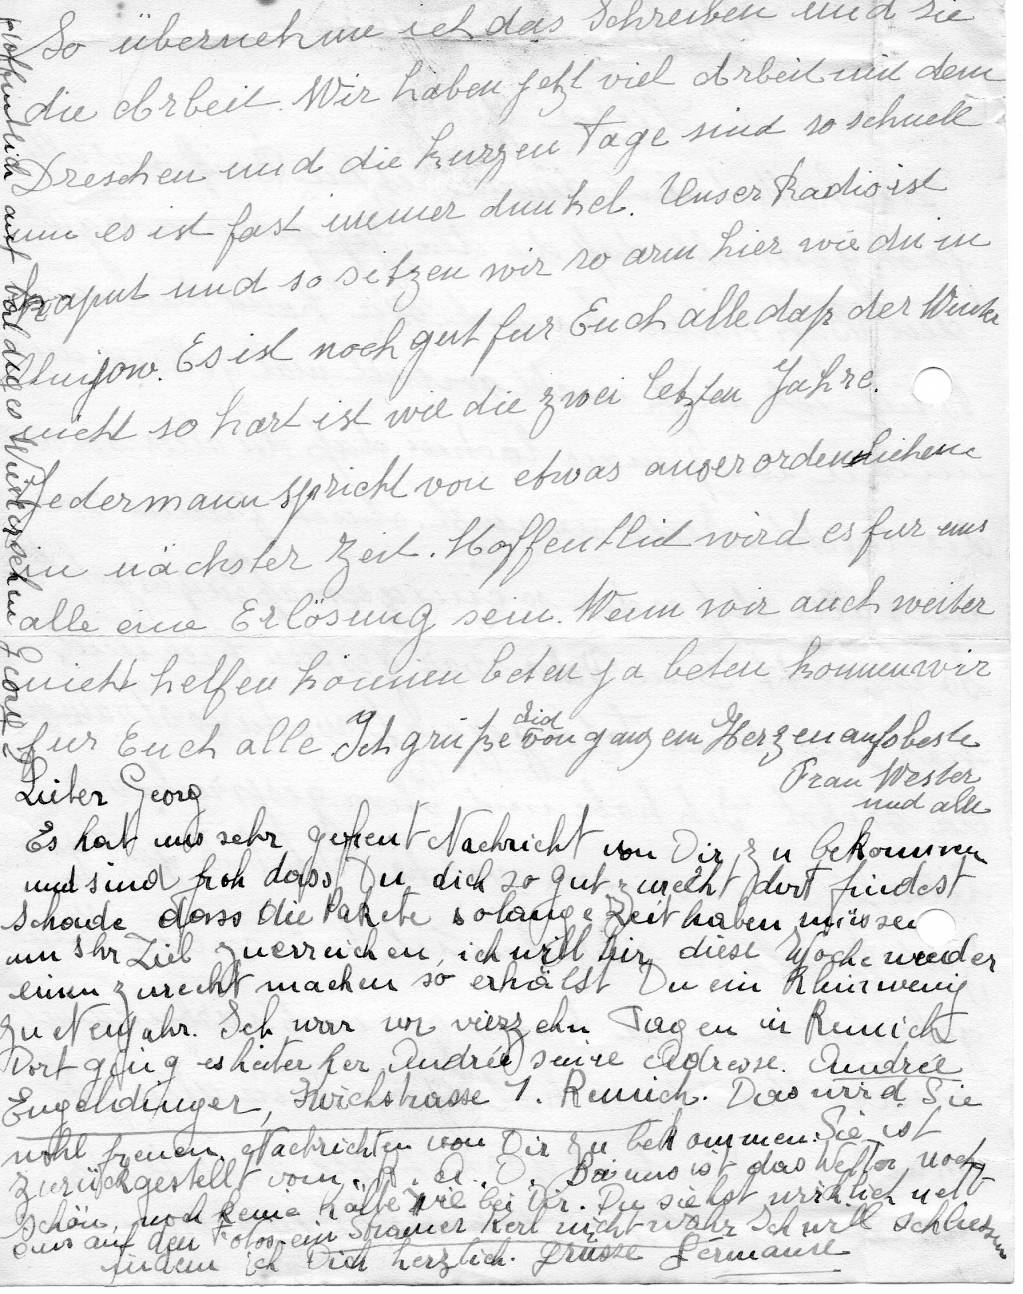 So übernehme ich das Schreiben und Sie
die Arbeit. Wir haben jetzt viel Arbeit mit dem
Dreschen und die kurzen Tage sind so schnell
um es ist fast immer dunkel. Unser Radio ist
kaput und so sitzen wir so arm hier wie du in
Es ist noch gut fur Euch alle daß der Winter
nicht so hart ist wie die zwei letzten Jahre.
Jedermann spricht von etwas auserordentlichem
in nächster Zeit. Hoffentlich wird es fur uns
alle eine Erlösung sein. Wenn wir auch weiter
nicht helfen können beten ja beten konnen wir
fur Euch alle. Ich grüße dich von ganzem Herzen aufs beste
Frau Wester
und alle
Lieber Georg
Es hat uns sehr gefreut Nachricht von Dir zu bekommen
und sind froh dass Du dich so gut zurecht dort findest
schade dass die Pakete solange Zeit haben müssen
um Ihr Ziel zuerreichen, ich will hir diese Woche wieder
einen zurecht machen so erhälst Du ein klein wenig
zu Neujahr. Ich war vor vierzehn Tagen in Remich
Dort ging es hinter her Andrée seine Adresse. Andrée
Engeldinger, 1. Remich. Das wird Sie
wohl freuen, Nachrichten von Dir zu bekommen. Sie ist
zurückgestellt vom R. A. D. Bei uns ist das Wetter noch
schön, noch keine Kälte wie bei Dir. Du siehst wirklich nett
aus auf den Fotos, ein Stramer Kerl nicht wahr Ich will schliesen
indem ich Dich herzlich Grüsse Germaine
Hoffentlich auf baldiges Wiedersehen Georg